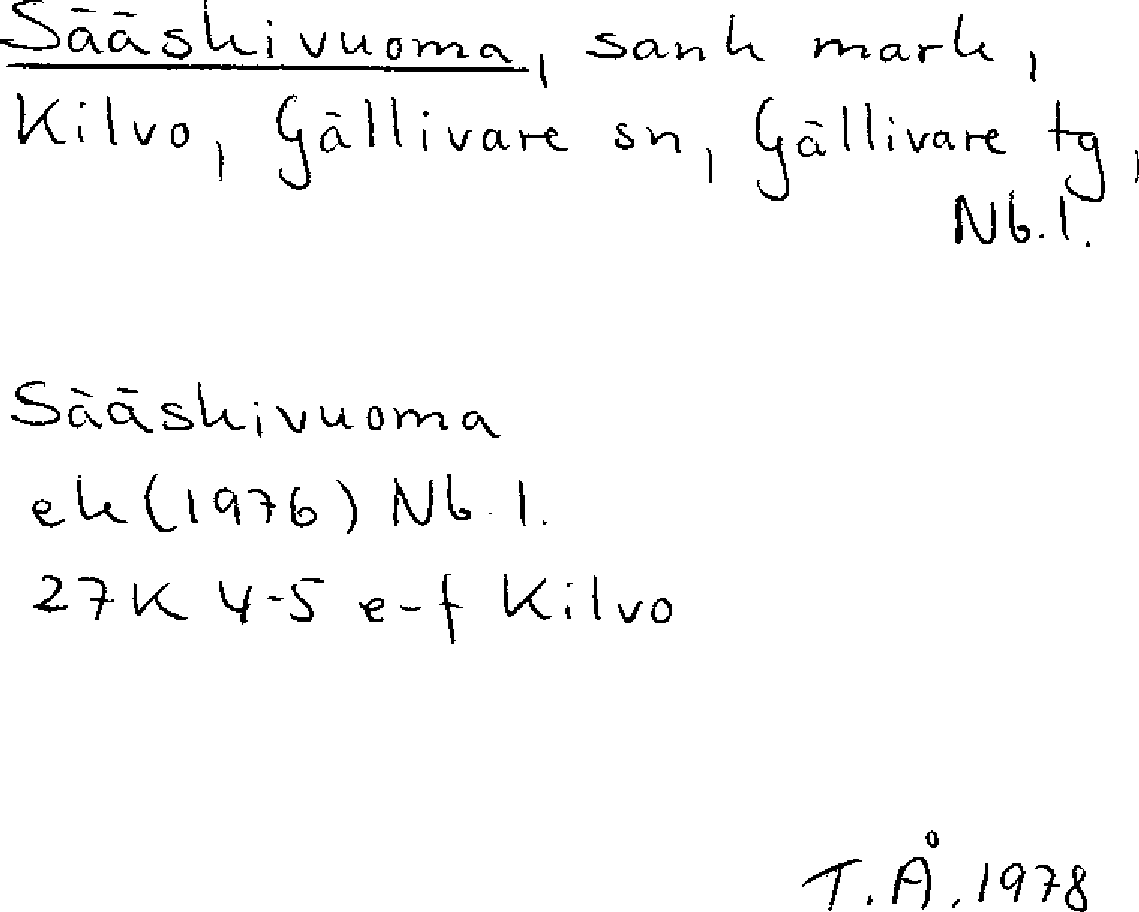 Sääskivuoma, sank mark,
Kilvo, Gällivare sn, Gällivare tg,
Nb.l.
Sääskivuoma
ek (1976) Nb.l.
27K 4-5 e-f Kilvo
T.Å. 1978